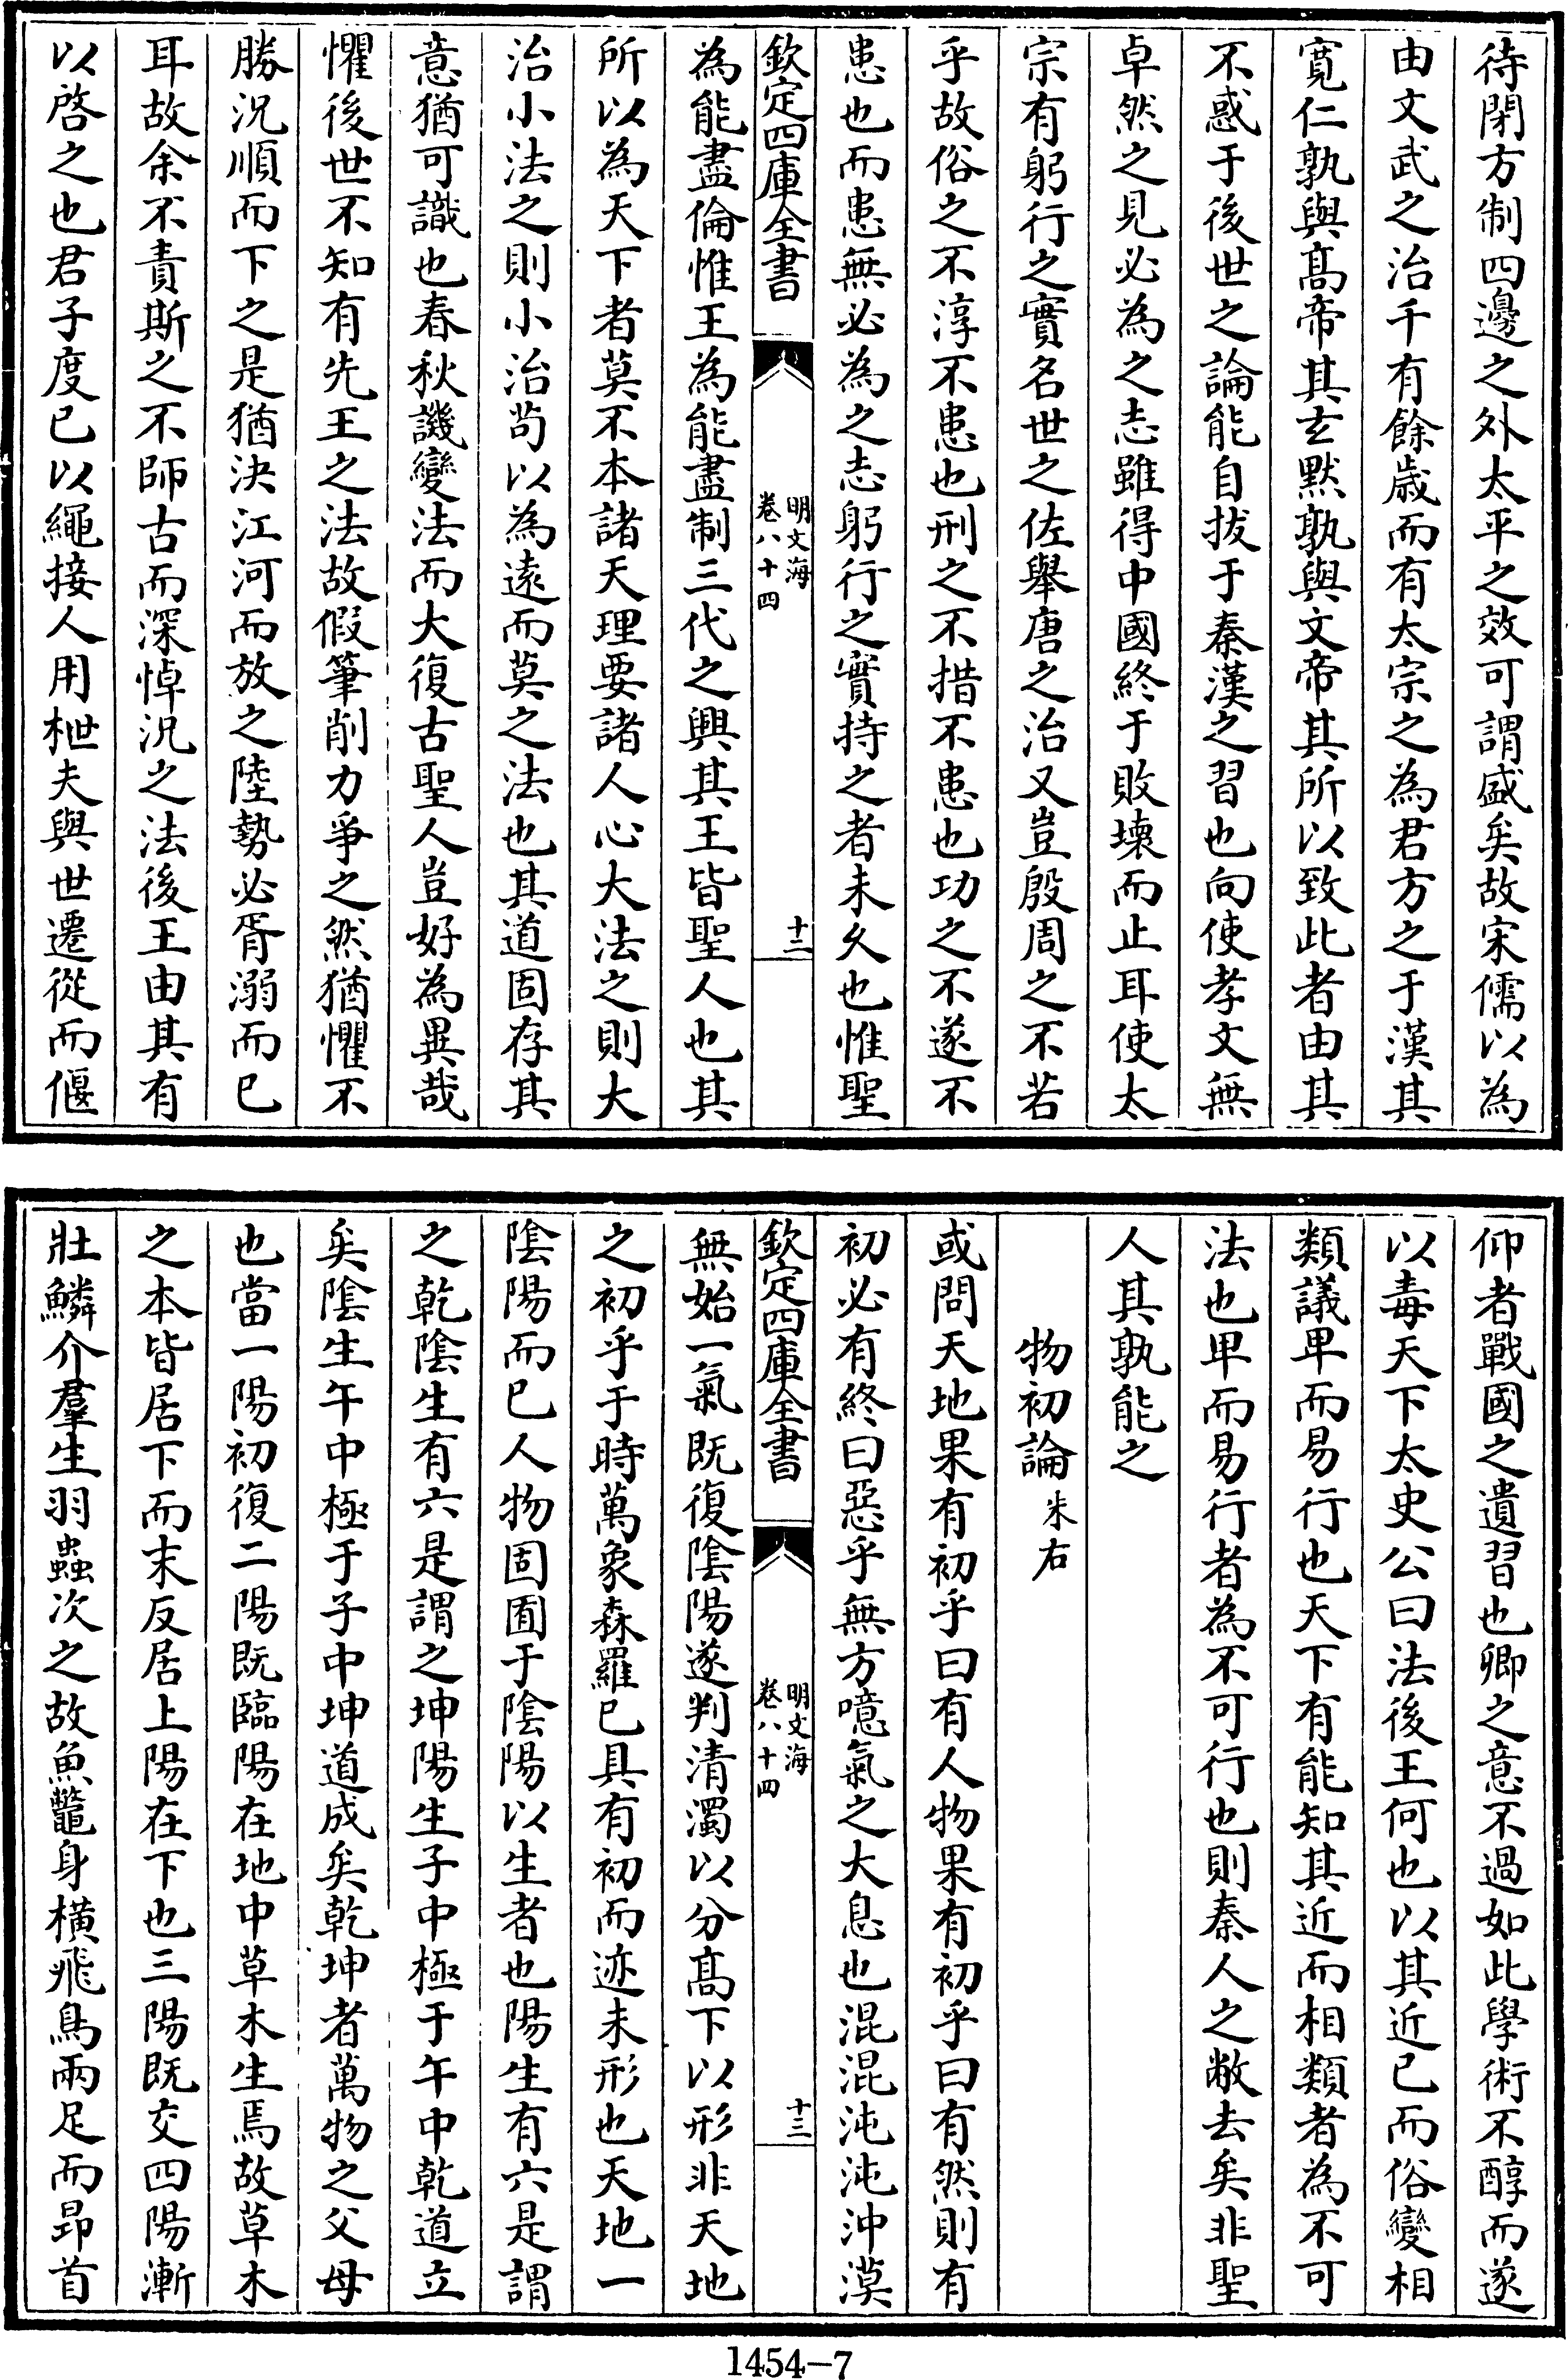 待閉方制四邊之外太平之效可謂盛矣故宋儒以為
由文武之治千有餘歲而有太宗之為君方之于漢其
寛仁孰與髙帝其𤣥黙孰與文帝其所以致此者由其
不惑于後世之論能自拔于秦漢之習也向使孝文無
卓然之見必為之志雖得中國終于敗壊而止耳使太
宗有躬行之實名世之佐舉唐之治又豈殷周之不若
乎故俗之不淳不患也刑之不措不患也功之不遂不
患也而患無必為之志躬行之實持之者未久也惟聖
欽定四庫全書
明文海
卷八十四
十二
為能盡倫惟王為能盡制三代之興其王皆聖人也其
所以為天下者莫不本諸天理要諸人心大法之則大
治小法之則小治苟以為逺而莫之法也其道固存其
意猶可識也春秋譏變法而大復古聖人豈好為異哉
懼後世不知有先王之法故假筆削力爭之然猶懼不
勝況順而下之是猶決江河而放之陸勢必胥溺而已
耳故余不責斯之不師古而深悼況之法後王由其有
以啓之也君子度已以繩接人用枻夫與世遷從而偃
仰者戰國之遺習也卿之意不過如此學術不醇而遂
以毒天下太史公曰法後王何也以其近已而俗變相
類議卑而易行也天下有能知其近而相類者為不可
法也卑而易行者為不可行也則秦人之敝去矣非聖
人其孰能之
物初論朱右
或問天地果有初乎曰有人物果有初乎曰有然則有
初必有終曰惡乎無方噫氣之大息也混混沌沌沖漠
欽定四庫全書
明文海
卷八十四
十三
無始一氣既復隂陽遂判清濁以分髙下以形非天地
之初乎于時萬象森羅已具有初而迹未形也天地一
隂陽而已人物固囿于隂陽以生者也陽生有六是謂
之乾隂生有六是謂之坤陽生子中極于午中乾道立
矣隂生午中極于子中坤道成矣乾坤者萬物之父母
也當一陽初復二陽既臨陽在地中草木生焉故草木
之本皆居下而末反居上陽在下也三陽既交四陽漸
壯鱗介羣生羽蟲次之故魚鼈身横飛鳥兩足而昂首
1454-7